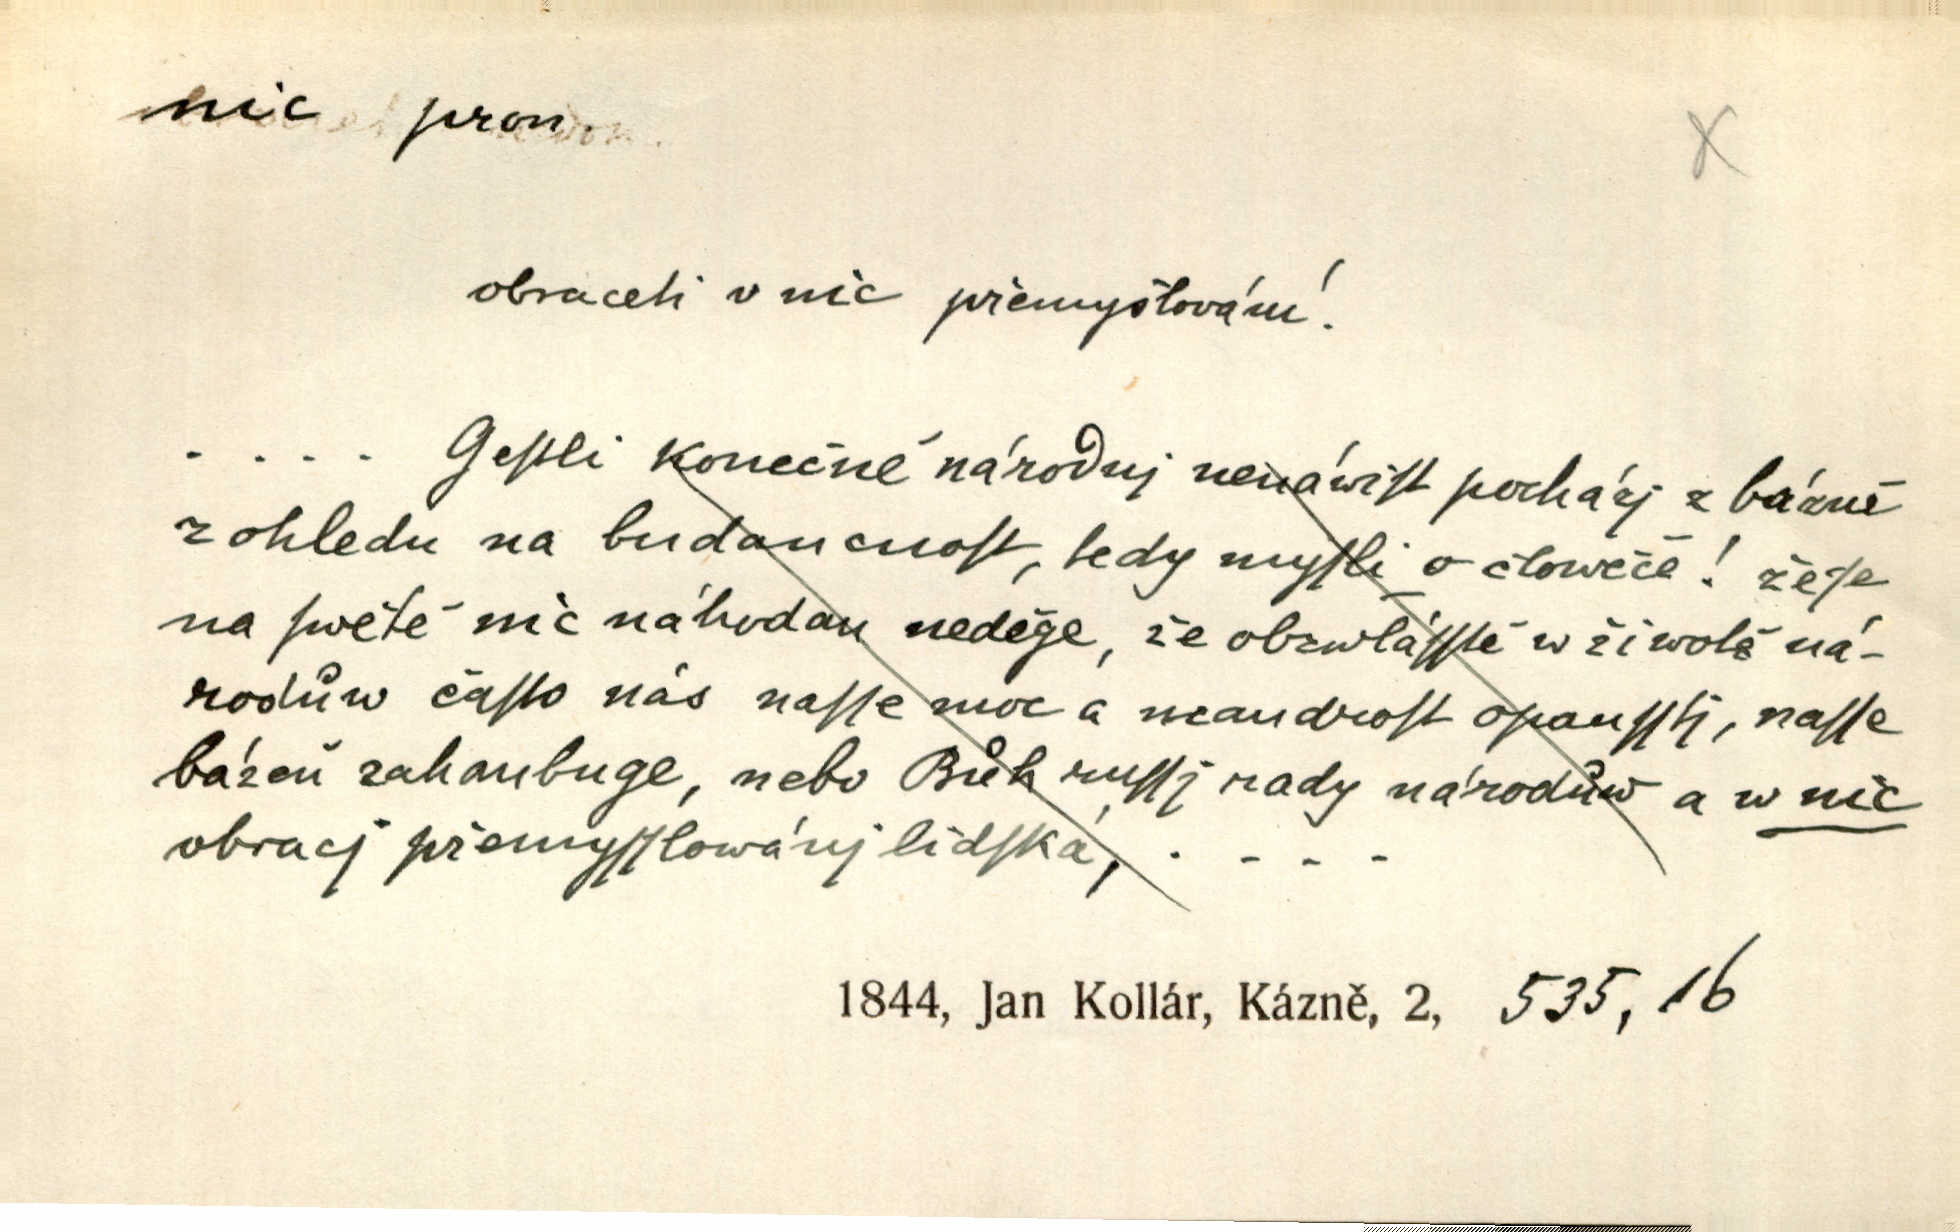 nic pron.
obraceti v nic přemyšlování.
. . . . Gestli konečně národnj nenáwist pocházj z bázně
z ohledu na budaucnost, tedy mysli o človĕče! že se
na swětě nic náhodau neděge, že obzwlásstě w žiwotě ná-
rodůw často nás nasse moc a maudrost opausstj, nasse
bázeň zahanbuge, nebo Bůh russj rady národůw a w nic
obracj přemysslowánj lidská, . - - -
1844, Jan Kollár, Kázně, 2, 535, 16